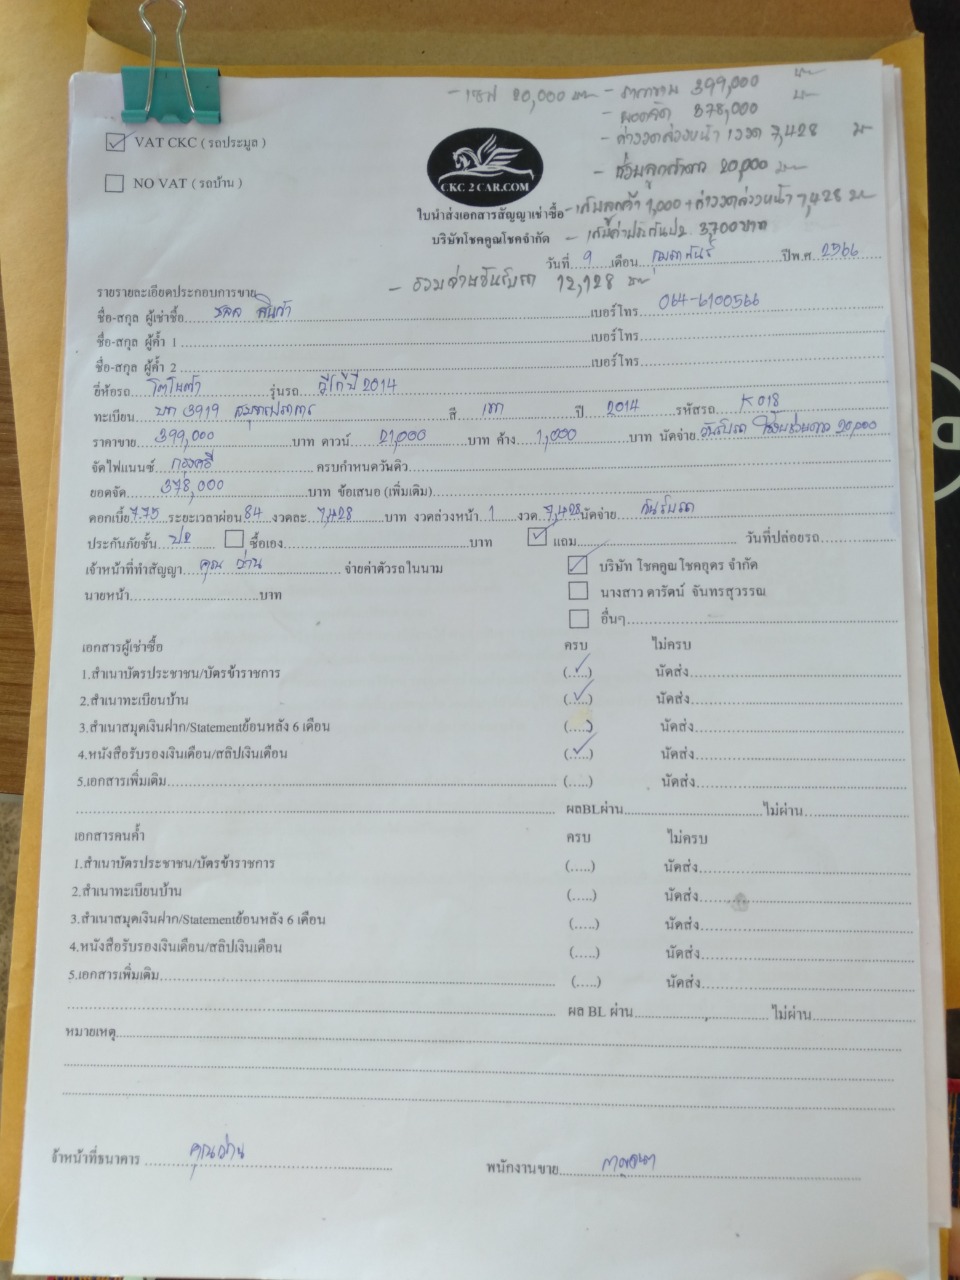 - เซฟ 20,000 - ราคาขาย 399,000
- ยอดจัด 378,000
- ค่างวดล่วงหน้า 1 งวด 7,428
- ช่วยลูกค้าดาว 20,000
- เก็บลูกค้า 1,000 + ค่างวดล่วงหน้า 7,428
- เก็บค่าประกันป2 3,700 บาท
- รวมจ่ายวันรับรถ 12,128
VAT CKC ( รถประมูล )
NO VAT ( รถบ้าน )
CKC 2 CAR.COM
ใบนำส่งเอกสารสัญญาเช่าซื้อ
บริษัทโชคคูณโชคจำกัด
วันที่ 9 เดือน กุมภาพันธ์ ปีพ.ศ. 2566
รายรายละเอียดประกอบการขาย
ชื่อ-สกุล ผู้เช่าซื้อ เบอร์โทร 064-6100566
ชื่อ-สกุล ผู้ค้ำ 1 เบอร์โทร
ชื่อ-สกุล ผู้ค้ำ 2 เบอร์โทร
ยี่ห้อรถ โตโยต้า รุ่นรถ วีโก้ ปี 2014
ทะเบียน 3919 สมุทรปราการ สี เทา ปี 2014 รหัสรถ K018
ราคาขาย 399,000 บาท ดาวน์ 21,000 บาท ค้าง 1,000 บาท นัดจ่าย วันรับรถ ใช้งบช่วยดาว 20,000
จัดไฟแนนซ์ กรุงศรี ครบกำหนดวันดิว
ยอดจัด 378,000 บาท ข้อเสนอ (เพิ่มเติม)
ดอกเบี้ย 7.75 ระยะเวลาผ่อน 84 งวดละ 7,428 บาท งวดล่วงหน้า 1 งวด 7,428 นัดจ่าย วันรับรถ
ประกันภัยชั้น ป2 ซื้อเอง บาท แถม วันที่ปล่อยรถ
เจ้าหน้าที่ทำสัญญา คุณ จ่าย่าค่าตัวรถในนาม บริษัท โชคคูณโชคอุดร จำกัด
นายหน้า บาท นางสาว ดารัตน์ จันทรสุวรรณ
อื่นๆ
เอกสารผู้เช่าซื้อ ครบ ไม่ครบ
1.สำเนาบัตรประชาชน/บัตรข้าราชการ (.....) นัดส่ง
2.สำเนาทะเบียนบ้าน (.....) นัดส่ง
3.สำเนาสมุดเงินฝาก/Statementย้อนหลัง 6 เดือน (.....) นัดส่ง
4.หนังสือรับรองเงินเดือน/สลิปเงินเดือน (.....) นัดส่ง
5.เอกสารเพิ่มเติม (.....) นัดส่ง
ผลBLผ่าน ไม่ผ่าน
เอกสารคนค้ำ ครบ ไม่ครบ
1.สำเนาบัตรประชาชน/บัตรข้าราชการ (.....) นัดส่ง
2.สำเนาทะเบียนบ้าน (.....) นัดส่ง
3.สำเนาสมุดเงินฝาก/Statementย้อนหลัง 6 เดือน (.....) นัดส่ง
4.หนังสือรับรองเงินเดือน/สลิปเงินเดือน (.....) นัดส่ง
5.เอกสารเพิ่มเติม (.....) นัดส่ง
ผล BL ผ่าน ไม่ผ่าน
หมายเหตุ
จ้าหน้าที่ธนาคาร พนักงานขาย